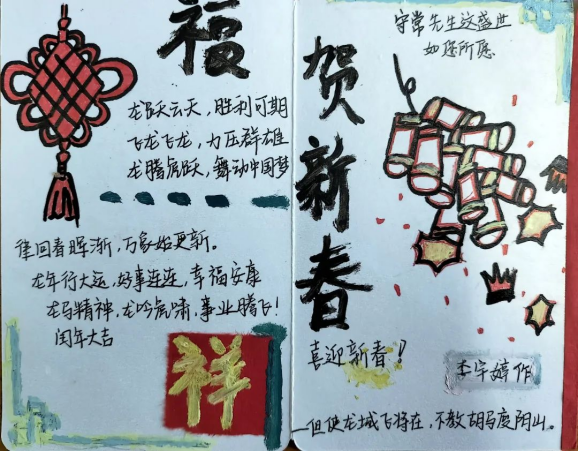 福
龙跃云天，胜利可期
飞龙飞龙，力压群雄
龙腾虎跃，舞动中国梦
律回春晖渐，万象始更新。
龙年行大运，好事连连，幸福安康
龙马精神，龙吟虎啸，事业腾飞！
闰年大吉
祥
贺新春
守常先生这盛世
如您所愿
喜迎新春！
李宇婷作
—但使龙城飞将在，不教胡马度阴山。